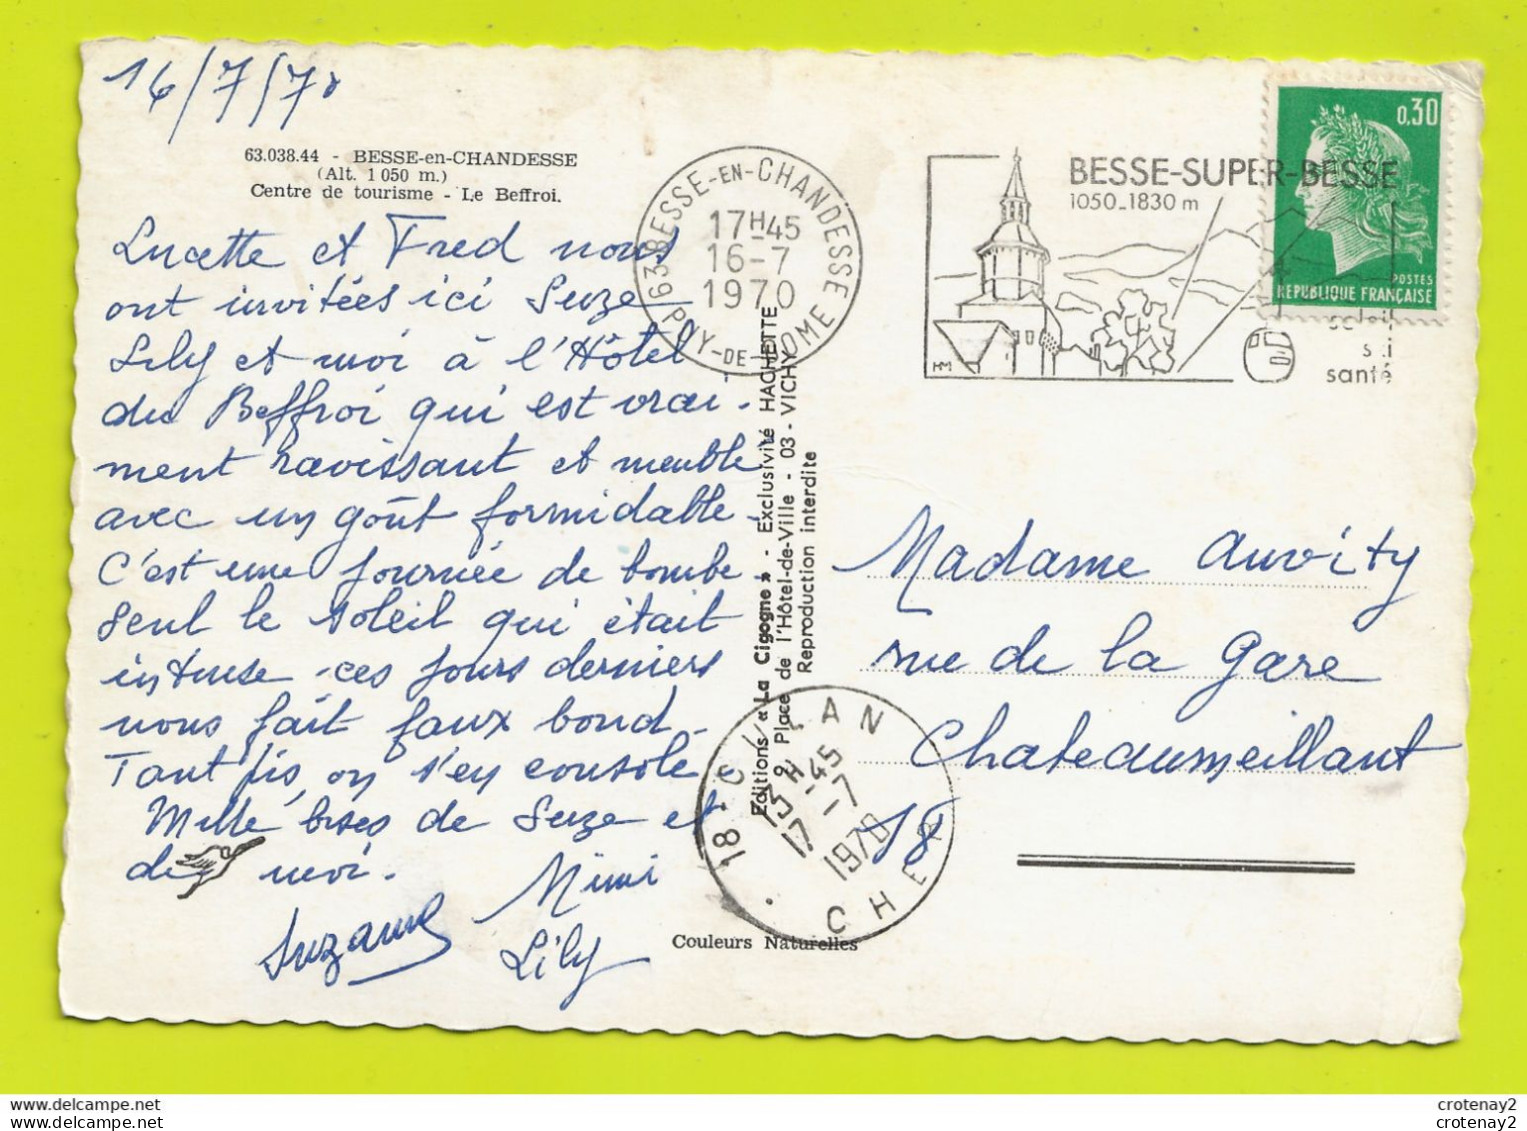 16/7/70
63.038.44 - BESSE-en-CHANDESSE
(Alt. 1 050 m.)
Centre de tourisme - Le Beffroi.
Lucette et Fred nous
ont invitées ici Suze
Lily et moi à l'Hôtel
du Beffroi qui est vrai-
ment ravissant et meublé
avec un goût formidable.
C'est une journée de bombe
seul le soleil qui était
intense ces jours derniers
nous fait faux bond.
Tant pis, on s'en console.
Mille bises de Suze et
de moi.
Mimi
Suzanne
Lily
63 BESSE-EN-CHANDESSE
17H45
16-7
1970
PUY-DE-DOME
BESSE-SUPER-BESSE
1050-1830 m
soleil
ski
santé
0,30
POSTES
REPUBLIQUE FRANÇAISE
Editions « La Cigogne » - Exclusivité HACHETTE
9, Place de l'Hôtel-de-Ville - 03 - VICHY
Reproduction interdite
Madame Auvity
rue de la Gare
Chateaumeillant
18
18-CULAN
13H45
17-7
1970
CHER
Couleurs Naturelles
crotenay2
crotenay2